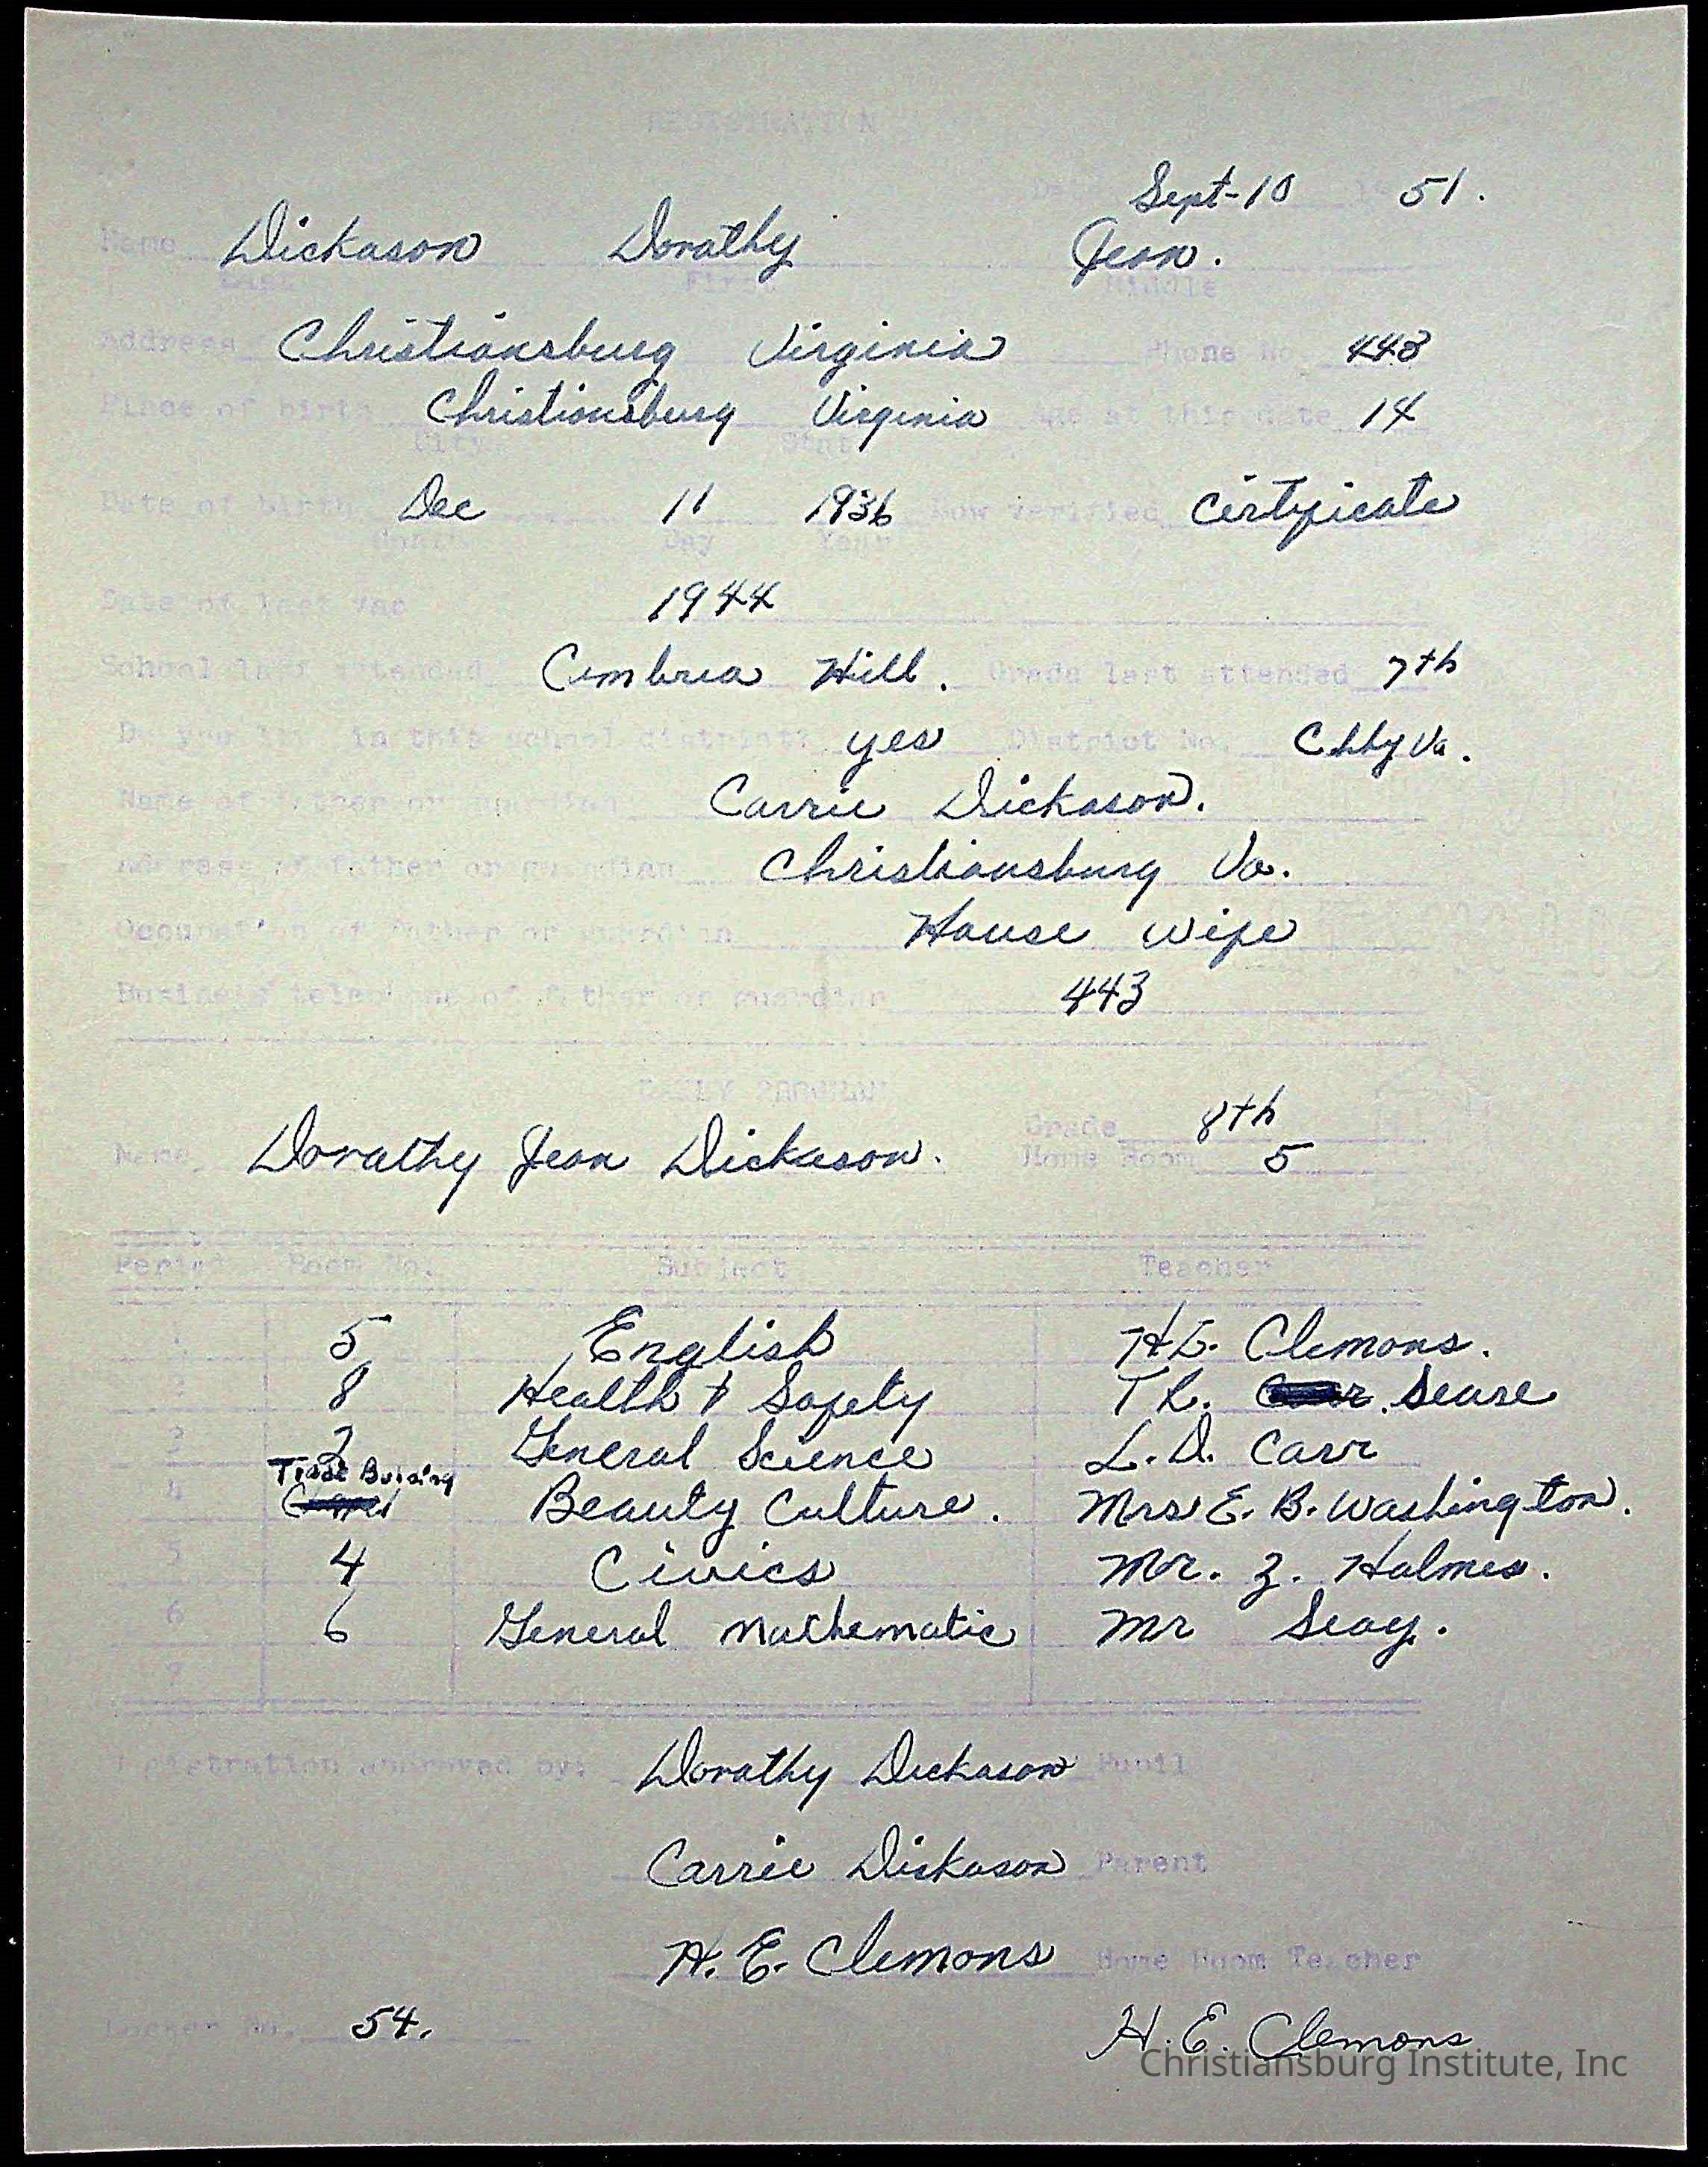 REGISTRATION
Date Sept-10 19 51.
Name Dickason Dorathy Jean.
Last First Middle
Address Christiansburg Virginia Phone No. 443
Place of birth Christionsburg Virginia Age at this date 14
City State
Date of birth Dec 11 1936 How verified Certificate
Month Day Year
Date of last vac 1944
School last attended Cambria Hill. Grade last attended 7th
Do you live in this school district? yes District No. Chbg Va.
Name of father or guardian Carrie Dickason.
Address of father or guardian Christiansburg Va.
Occupation of father or guardian House wife
Business telephone of father or guardian 443
DAILY PROGRAM
Grade 8th
Name Dorathy Jean Dickason. Home Room 5
Period Room No. Subject Teacher
1 5 English H.E. Clemons.
2 8 Health & Safety T R. Sease
3 2 General Science L.D. Carr
Trade Buiding
4 Beauty Culture. Mrs E. B. Washington.
5 4 Civics Mr. Z. Holmes.
6 6 General Mathematic Mr Seay.
7
Registration approved by: Dorathy Dickason Pupil
Carrie Dickason Parent
H. E. Clemons Home Room Teacher
Locker No. 54. H. E. Clemons
Christiansburg Institute, Inc